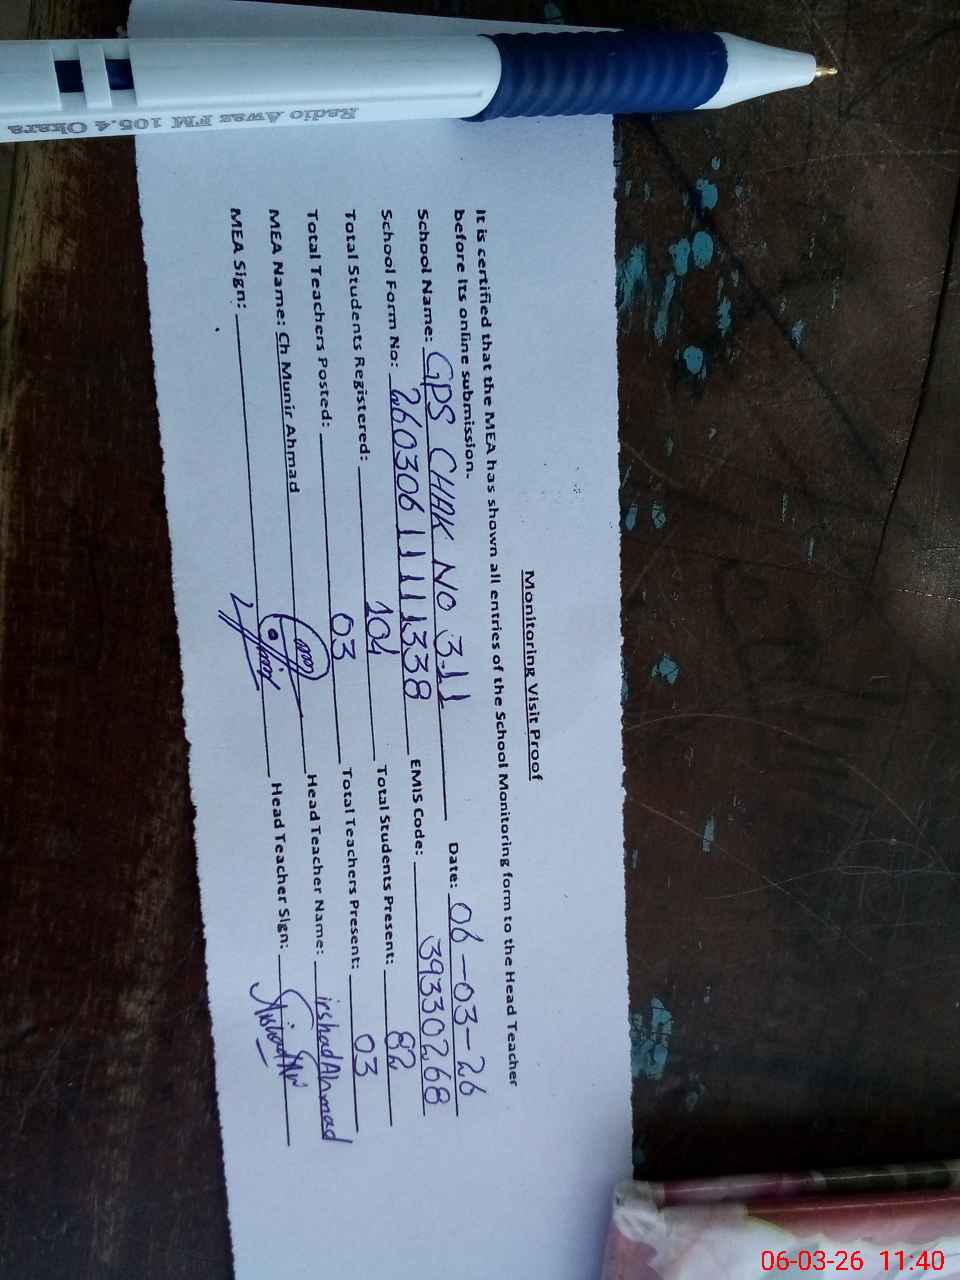 Radio Awaz FM 105.4 Okara
Monitoring Visit Proof
It is certified that the MEA has shown all entries of the School Monitoring form to the Head Teacher
before its online submission.
School Name: GPS CHAK NO 3-11 Date: 06-03-26
School Form No: 26030611111338 EMIS Code: 39330268
Total Students Registered: 104 Total Students Present: 82
Total Teachers Posted: 03 Total Teachers Present: 03
MEA Name: Ch Munir Ahmad Head Teacher Name: irshad Ahmad
MEA Sign: Head Teacher Sign:
06-03-26 11:40